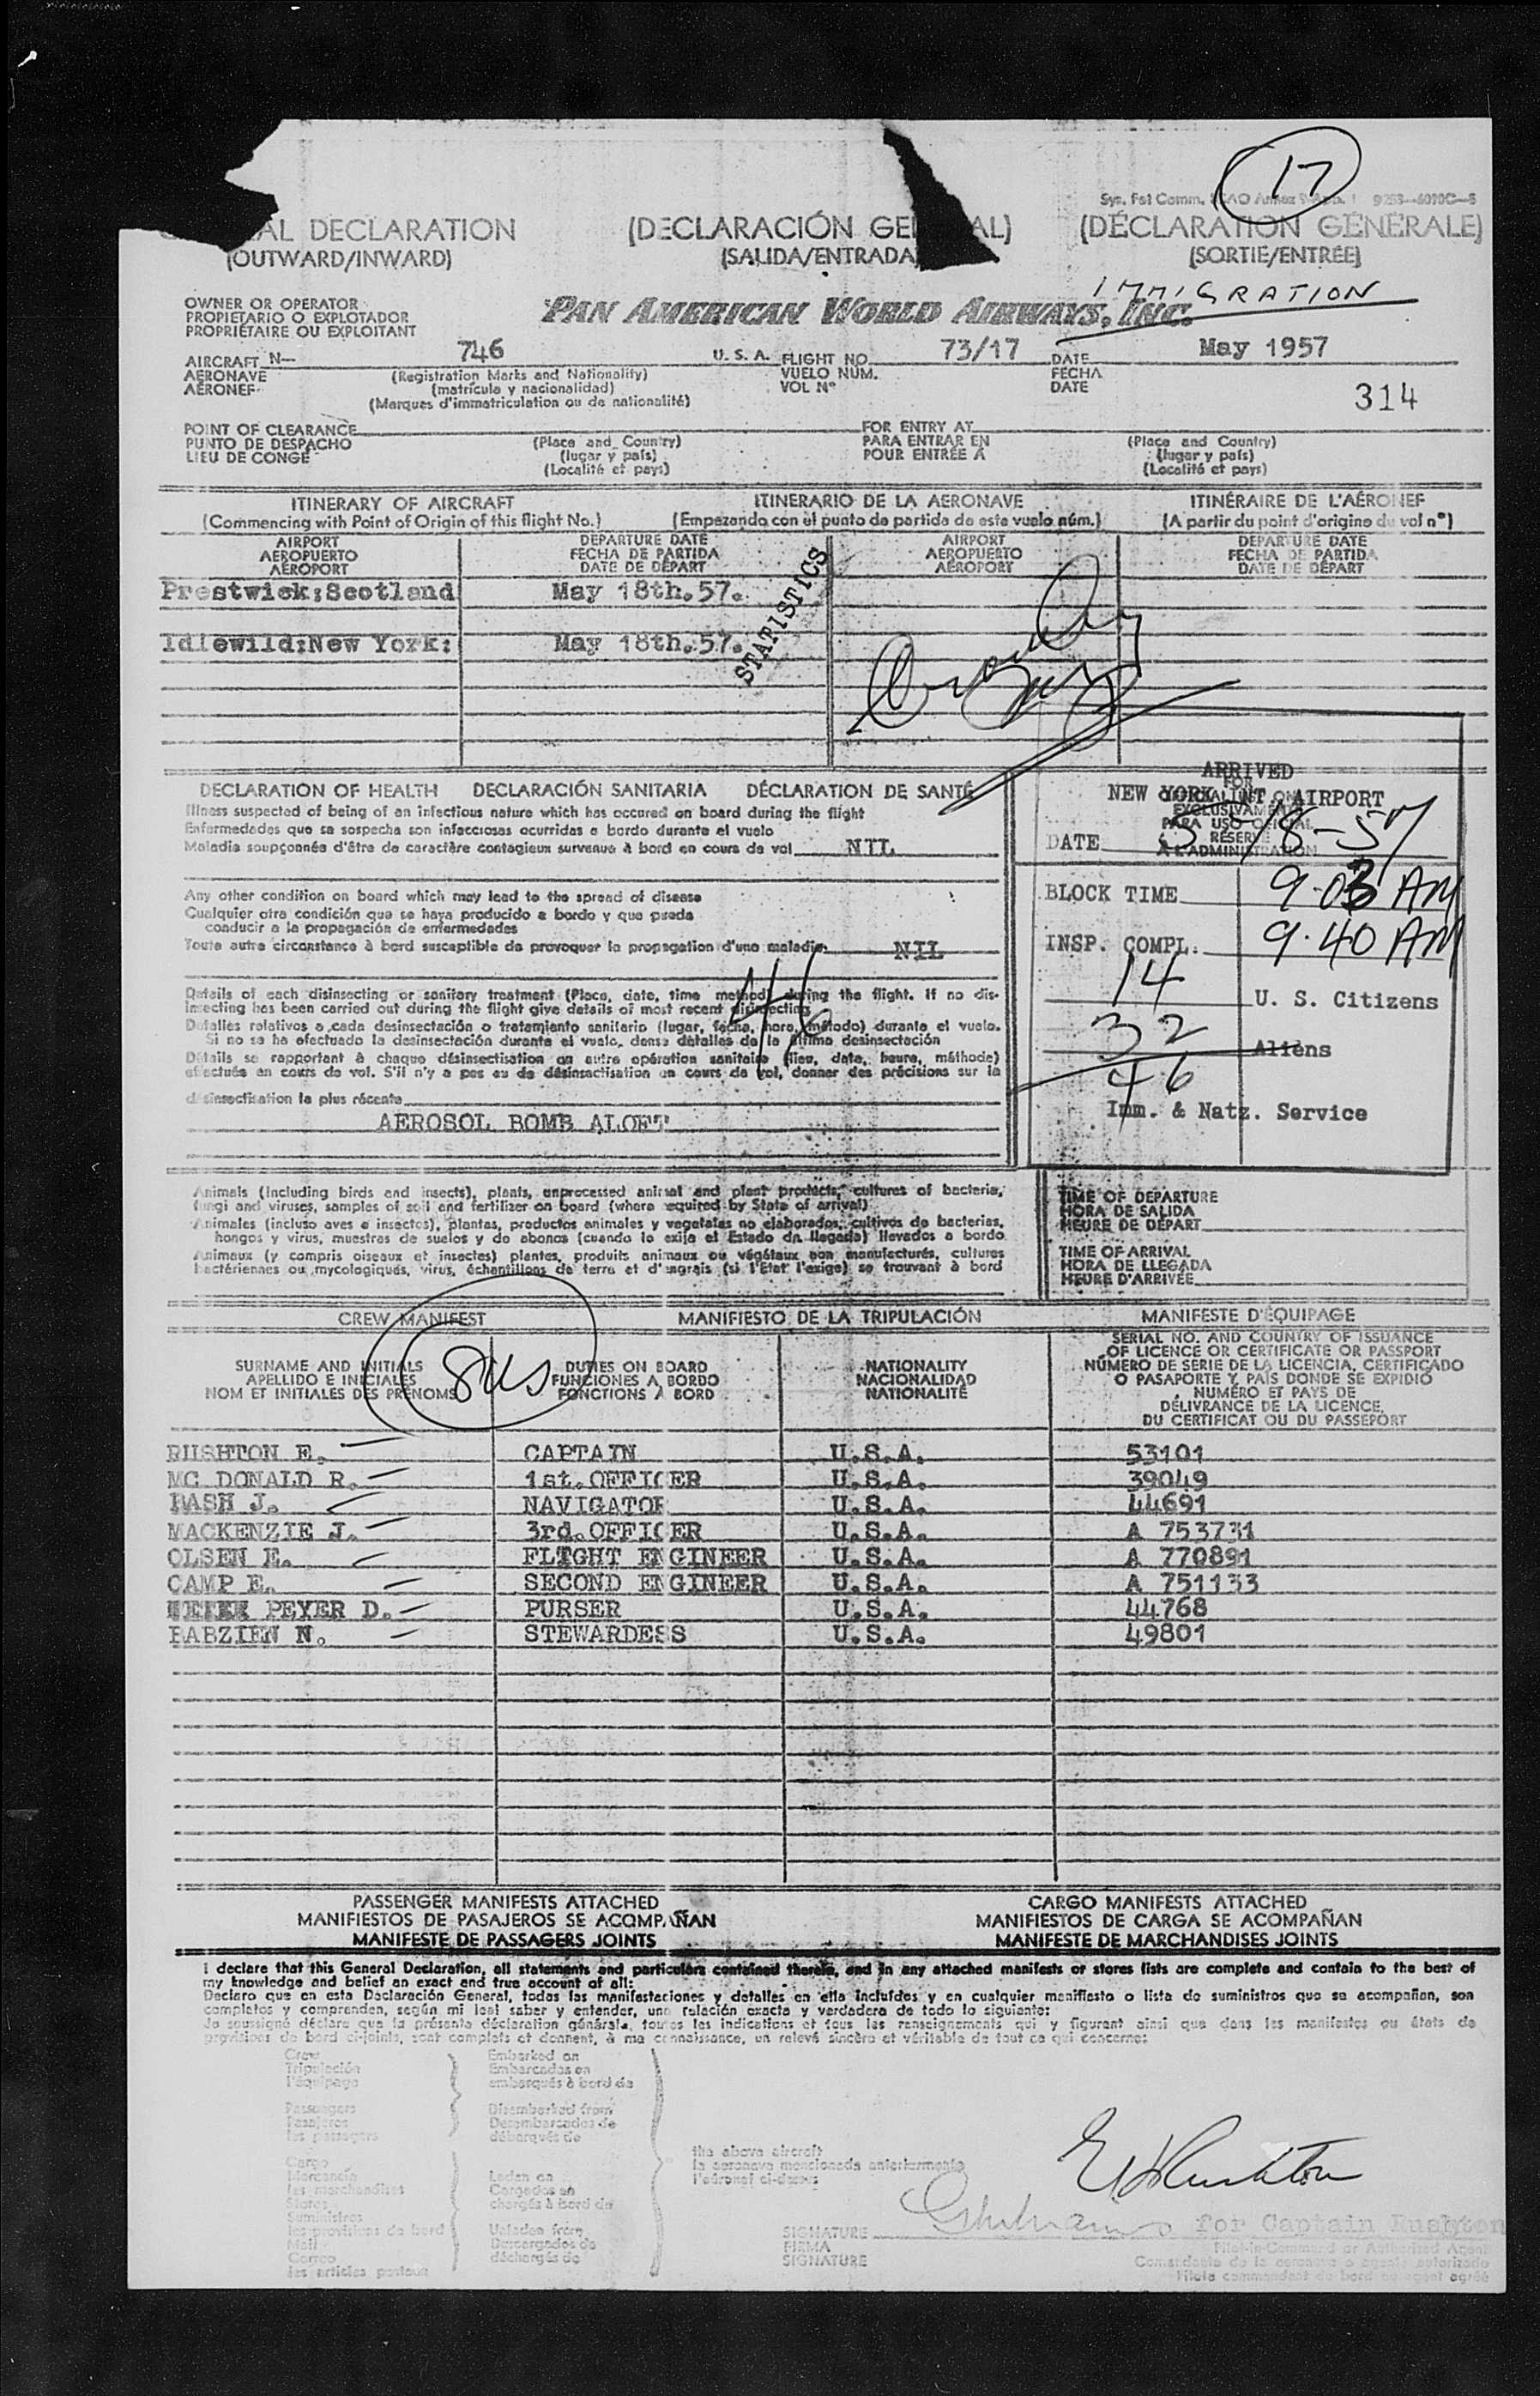 17
Sys. Fol Comm.
AL DECLARATION (DECLARACIÓN GE AL) (DÉCLARATION GÉNÉRALE)
(OUTWARD/INWARD) (SALIDA/ENTRADA (SORTIE/ENTRÉE)
IMMIGRATION
OWNER OR OPERATOR
PROPIETARIO O EXPLOTADOR
PROPRIÉTAIRE OU EXPLOITANT
PAN AMERICAN WORLD AIRWAYS, INC.
AIRCRAFT N- 746 U. S. A. FLIGHT NO. 73/17 DATE May 1957
AERONAVE (Registration Marks and Nationality) VUELO NUM. FECHA
AÉRONEF (matrícula y nacionalidad) VOL Nº DATE
(Marques d'immatriculation ou de nationalité)
314
POINT OF CLEARANCE FOR ENTRY AT
PUNTO DE DESPACHO (Place and Country) PARA ENTRAR EN (Place and Country)
LIEU DE CONGÉ (lugar y país) POUR ENTRÉE A (lugar y país)
(Localité et pays) (Localité et pays)
ITINERARY OF AIRCRAFT ITINERARIO DE LA AERONAVE ITINÉRAIRE DE L'AÉRONEF
(Commencing with Point of Origin of this flight No.) (Empezando con el punto de partida de este vuelo núm.) (A partir du point d'origine du vol nº)
AIRPORT DEPARTURE DATE AIRPORT DEPARTURE DATE
AEROPUERTO FECHA DE PARTIDA AEROPUERTO FECHA DE PARTIDA
AÉROPORT DATE DE DÉPART AÉROPORT DATE DE DÉPART
Prestwick:Scotland May 18th.57.
Idlewild:New York: May 18th.57.
STATISTICS
DECLARATION OF HEALTH DECLARACIÓN SANITARIA DÉCLARATION DE SANTÉ
Illness suspected of being of an infectious nature which has occured on board during the flight
Enfermedades que se sospecha son infecciosas ocurridas a bordo durante el vuelo
Maladie soupçonnée d'être de caractère contagieux survenue à bord en cours de vol NIL
Any other condition on board which may lead to the spread of disease
Cualquier otra condición que se haya producido a bordo y que pueda
conducir a la propagación de enfermedades
Toute autre circonstance à bord susceptible de provoquer la propagation d'une maladie NIL
46
Details of each disinsecting or sanitary treatment (Place, date, time method) during the flight. If no dis-
insecting has been carried out during the flight give details of most recent disinsecting
Detalles relativos a cada desinsectación o tratamiento sanitario (lugar, fecha, hora, método) durante el vuelo.
Si no se ha efectuado la desinsectación durante el vuelo, dense detalles de la última desinsectación
Détails se rapportant à chaque désinsectisation ou autre opération sanitaire (lieu, date, heure, méthode)
effectués en cours de vol. S'il n'y a pas eu de désinsectisation en cours de vol, donner des précisions sur la
désinsectisation la plus récente
AEROSOL BOMB ALOFT
ARRIVED
NEW YORK INT. AIRPORT
DATE 5-18-57
BLOCK TIME 9.03 AM
INSP. COMPL. 9.40 AM
14 U. S. Citizens
32 Aliens
46
Imm. & Natz. Service
Animals (including birds and insects), plants, unprocessed animal and plant products, cultures of bacteria,
fungi and viruses, samples of soil and fertilizer on board (where required by State of arrival)
Animales (incluso aves e insectos), plantas, productos animales y vegetales no elaborados, cultivos de bacterias,
hongos y virus, muestras de suelos y de abonos (cuando lo exija el Estado de llegada) llevados a bordo
Animaux (y compris oiseaux et insectes) plantes, produits animaux ou végétaux non manufacturés, cultures
bactériennes ou mycologiques, virus, échantillons de terre et d'engrais (si l'Etat l'exige) se trouvant à bord
TIME OF DEPARTURE
HORA DE SALIDA
HEURE DE DÉPART
TIME OF ARRIVAL
HORA DE LLEGADA
HEURE D'ARRIVÉE
CREW MANIFEST MANIFIESTO DE LA TRIPULACIÓN MANIFESTE D'ÉQUIPAGE
8us
SURNAME AND INITIALS
APELLIDO E INICIALES
NOM ET INITIALES DES PRÉNOMS
DUTIES ON BOARD
FUNCIONES A BORDO
FONCTIONS À BORD
NATIONALITY
NACIONALIDAD
NATIONALITÉ
SERIAL NO. AND COUNTRY OF ISSUANCE
OF LICENCE OR CERTIFICATE OR PASSPORT
NÚMERO DE SERIE DE LA LICENCIA, CERTIFICADO
O PASAPORTE Y PAÍS DONDE SE EXPIDIÓ
NUMÉRO ET PAYS DE
DÉLIVRANCE DE LA LICENCE,
DU CERTIFICAT OU DU PASSEPORT
RUSHTON E. CAPTAIN U.S.A. 53101
MC DONALD R. 1st.OFFICER U.S.A. 39049
BASH J. NAVIGATOR U.S.A. 44691
MACKENZIE J. 3rd.OFFICER U.S.A. A 753731
OLSEN E. FLIGHT ENGINEER U.S.A. A 770891
CAMP E. SECOND ENGINEER U.S.A. A 751133
PEYER D. PURSER U.S.A. 44768
BABZIEN N. STEWARDESS U.S.A. 49801
PASSENGER MANIFESTS ATTACHED CARGO MANIFESTS ATTACHED
MANIFIESTOS DE PASAJEROS SE ACOMPAÑAN MANIFIESTOS DE CARGA SE ACOMPAÑAN
MANIFESTE DE PASSAGERS JOINTS MANIFESTE DE MARCHANDISES JOINTS
I declare that this General Declaration, all statements and particulars contained therein, and in any attached manifests or stores lists are complete and contain to the best of
my knowledge and belief an exact and true account of all:
Declaro que en esta Declaración General, todas las manifestaciones y detalles en ella incluídos y en cualquier manifiesto o lista de suministros que se acompañan, son
completos y comprenden, según mi leal saber y entender, una relación exacta y verdadera de todo lo siguiente:
Je soussigné déclare que la présente déclaration générale, toutes les indications et tous les renseignements qui y figurent ainsi que dans les manifestes ou états de
provisions de bord ci-joints, sont complets et donnent, à ma connaissance, un relevé sincère et véritable de tout ce qui concerne:
Crew
Tripulación
l'équipage
Passengers
Pasajeros
les passagers
Cargo
Mercancía
les marchandises
Stores
Suministros
les provisions de bord
Mail
Correo
les articles postaux
Embarked on
Embarcados en
embarqués à bord de
Disembarked from
Desembarcados de
débarqués de
Laden on
Cargados en
chargés à bord de
Unladen from
Descargados de
déchargés de
the above aircraft
la aeronave mencionada anteriormente
l'aéronef ci-dessus
E Rushton
SIGNATURE for Captain Rushton
FIRMA Pilot-in-Command or Authorized Agent
SIGNATURE Comandante de la aeronave o agente autorizado
Pilote commandant de bord ou agent agréé